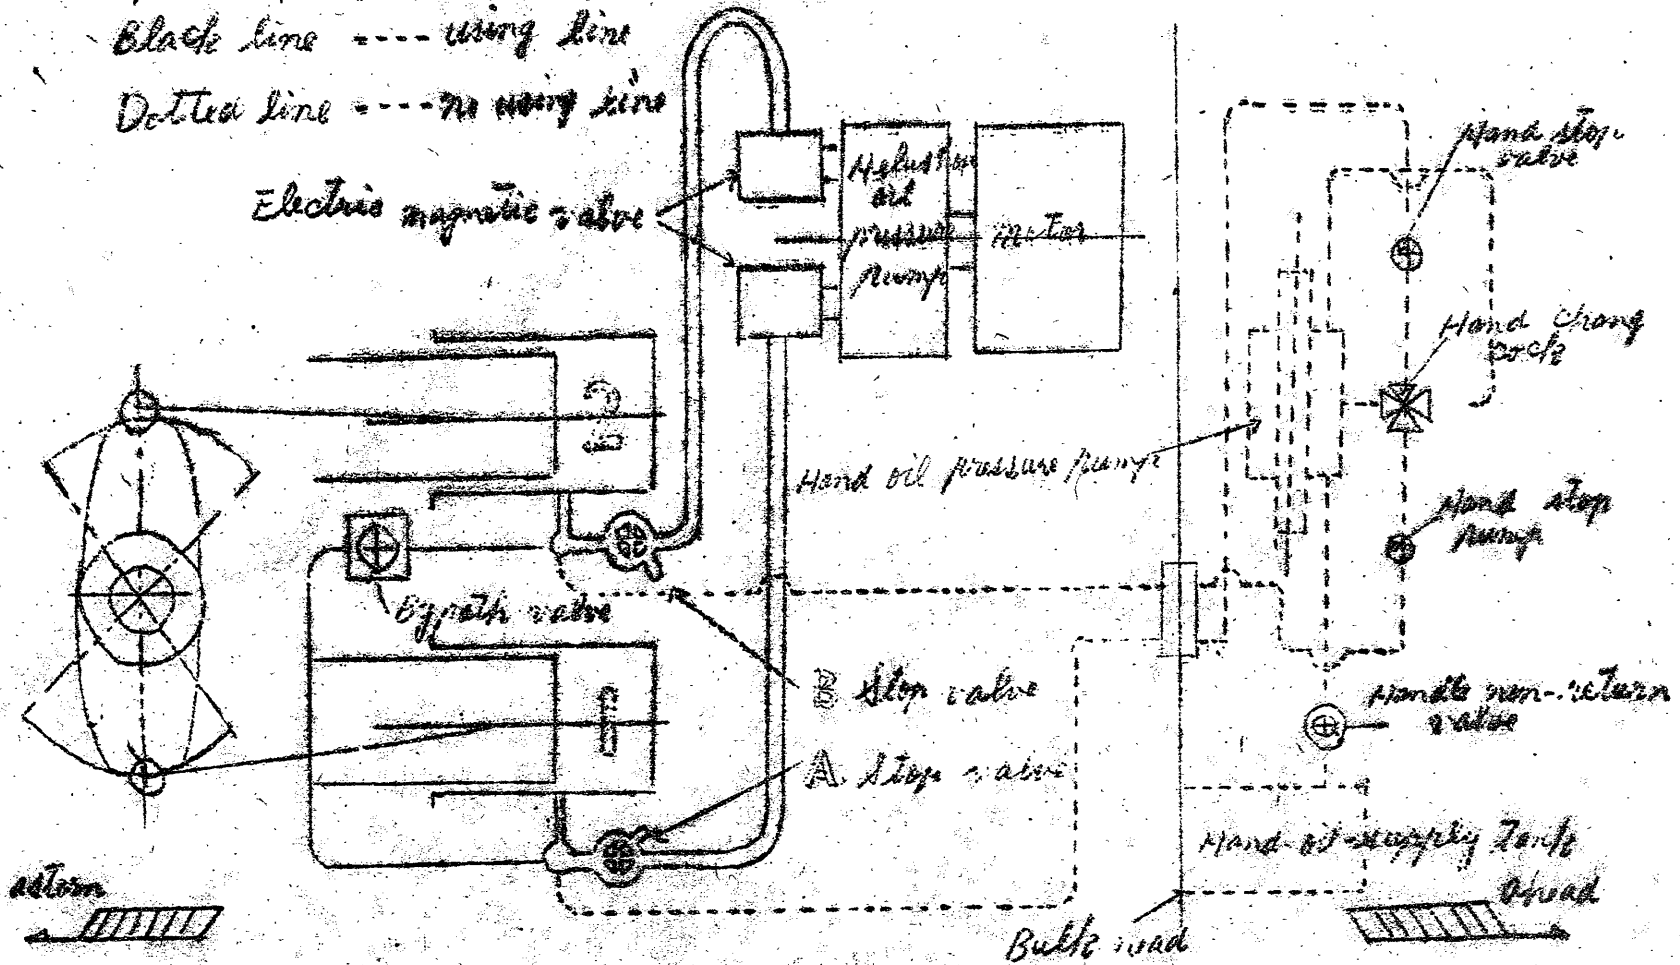 Black line ---- using line
Dotted line ---- no using line
Electric magnetic valve
oil
pressure
pump
motor
Hand stop
valve
Hand chang
cock
2
Hand oil pressure pump
Hand stop
pump
Bypath valve
B Stop valve
Handle non-return
valve
1
A. Stop valve
Hand oil supply Tank
astern
Ahead
Bulk head